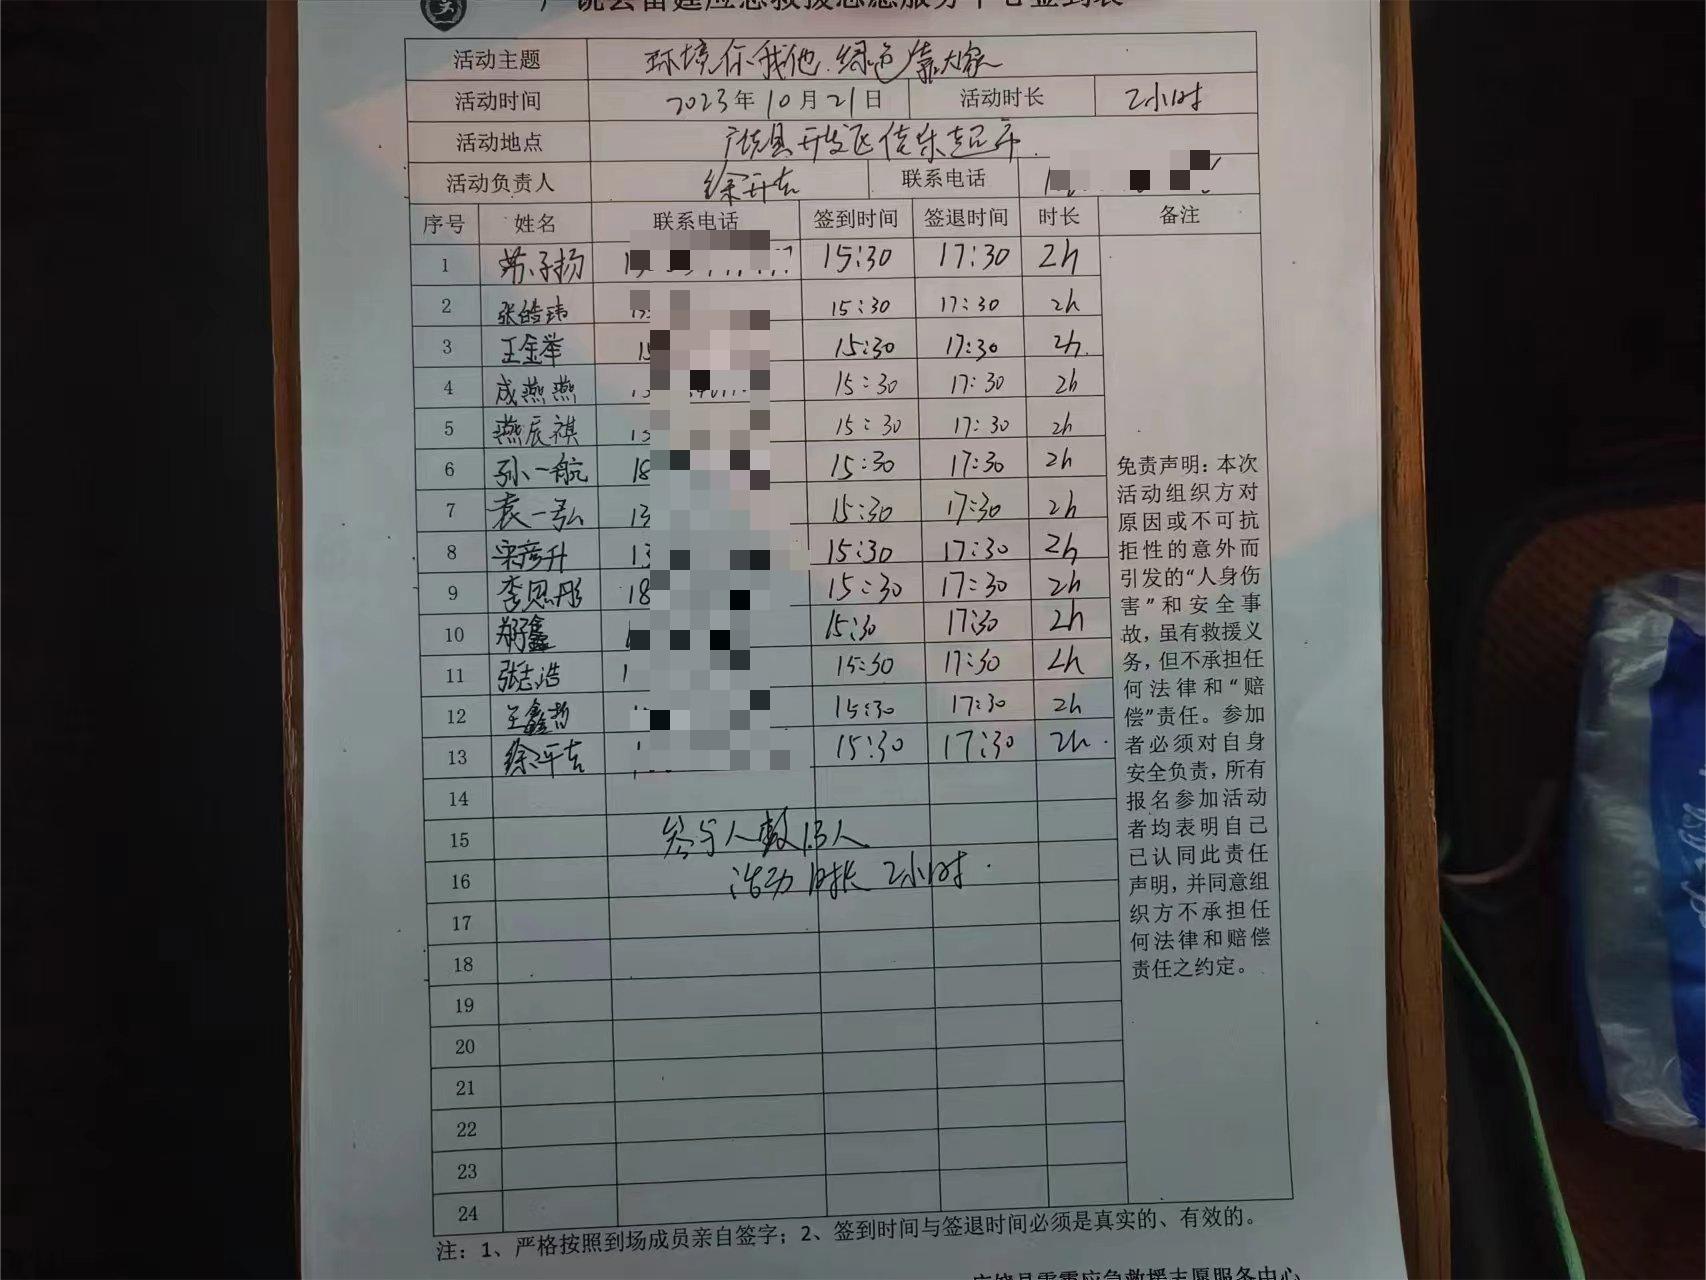 活动主题 环境你我他.绿色靠大家
活动时间 2023年10月21日 活动时长 2小时
活动地点 广饶县开发区信乐超市.
活动负责人 联系电话
序号 姓名 联系电话 签到时间 签退时间 时长 备注
1 苏子扬 15:30 17:30 2h
2 张皓玮 15:30 17:30 2h
3 王金举 15 15:30 17:30 2h.
4 成燕燕 13 15:30 17:30 2h
5 燕辰祺 13 15:30 17:30 2h
6 孙一航 18 15:30 17:30 2h
7 袁一弘 13 15:30 17:30 2h
8 宋彦升 13 15:30 17:30 2h
9 李思彤 18 15:30 17:30 2h
10 15:30 17:30 2h
11 张志浩 1 15:30 17:30 2h
12 王鑫哲 15:30 17:30 2h
13 15:30 17:30 2h.
14
15 参与人数13人
16 活动时长2小时.
17
18
19
20
21
22
23
24
免责声明：本次
活动组织方对
原因或不可抗
拒性的意外而
引发的“人身伤
害”和安全事
故，虽有救援义
务，但不承担任
何法律和“赔
偿”责任。参加
者必须对自身
安全负责，所有
报名参加活动
者均表明自己
已认同此责任
声明，并同意组
织方不承担任
何法律和赔偿
责任之约定。
注：1、严格按照到场成员亲自签字；2、签到时间与签退时间必须是真实的、有效的。